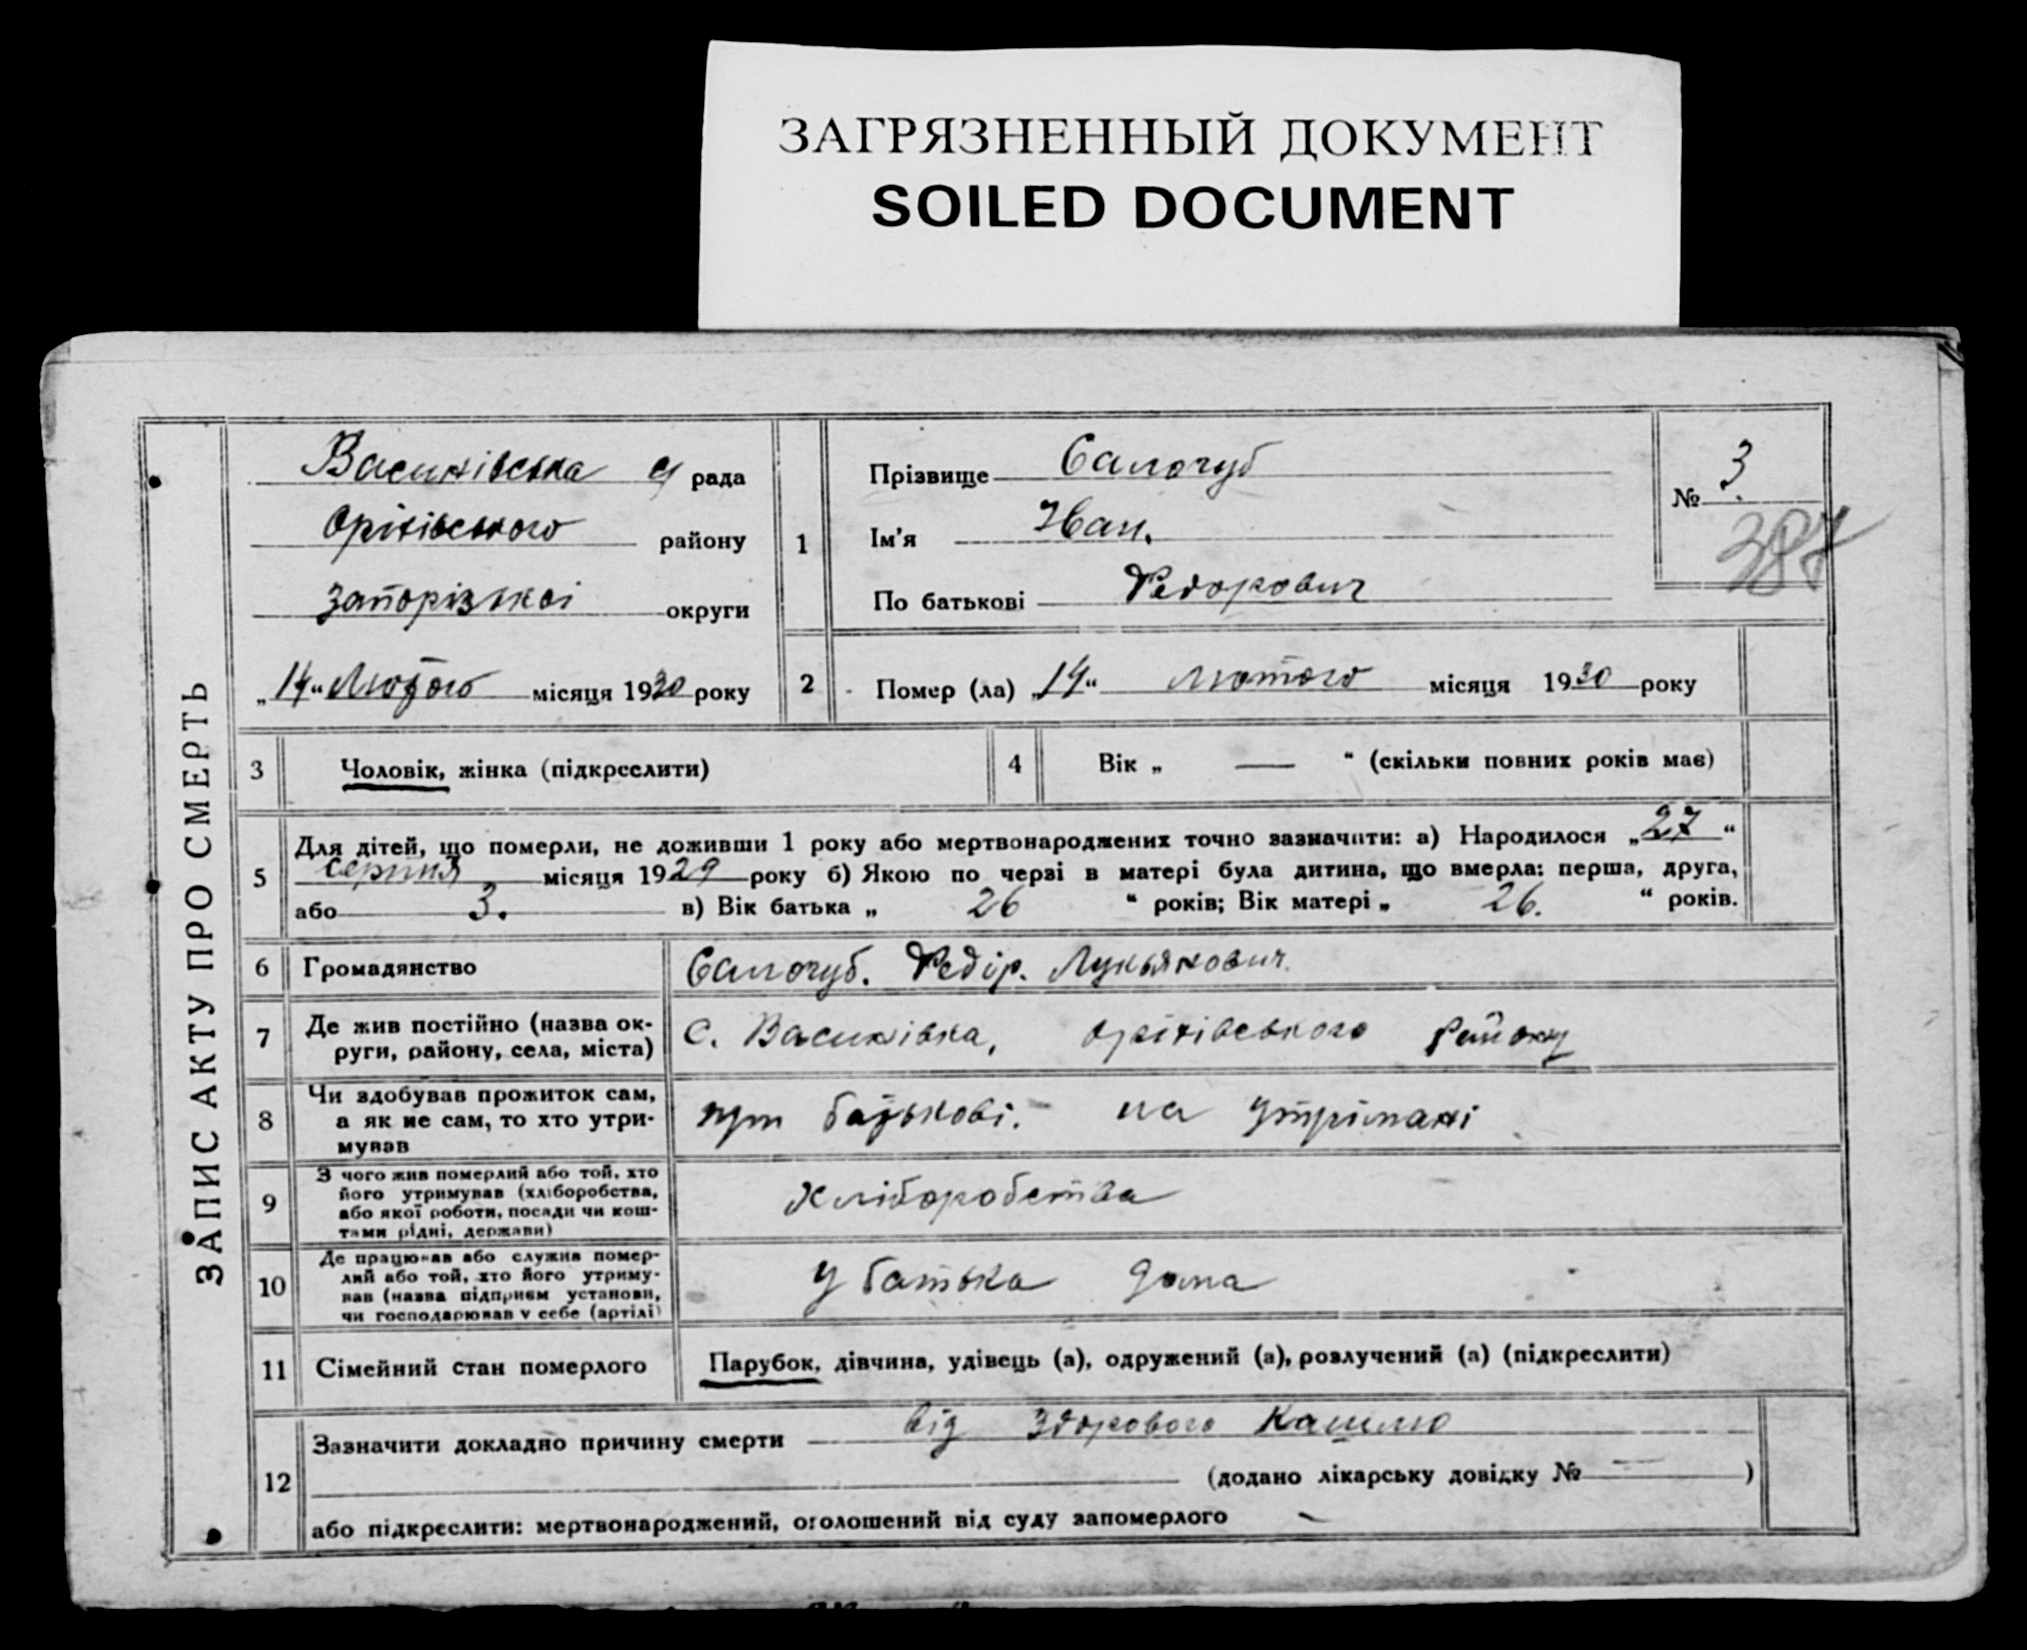 ЗАГРЯЗНЕННЫЙ ДОКУМЕНТ
SOILED DOCUMENT
ЗАПИС АКТУ ПРО СМЕРТЬ
Василівська с/ рада
Оріхівського району
Запорізької округи
„14“ Лютого місяця 1930 року
1
Прізвище Салогуб
Ім'я Іван.
По батькові Федорович
№ 3
387
2 Помер (ла) „14“ лютого місяця 1930 року
3 Чоловік, жінка (підкреслити)
4 Вік „ — “ (скільки повних років має)
5 Для дітей, що померли, не доживши 1 року або мертвонароджених точно зазначити: а) Народилося „27“
серпня місяця 1929 року б) Якою по черзі в матері була дитина, що вмерла: перша, друга,
або 3. в) Вік батька „ 26 “ років; Вік матері „ 26. “ років.
6 Громадянство Салогуб. Федір. Лукьянович.
7 Де жив постійно (назва ок-
руги, району, села, міста)
с. Василівка, Оріхівського району
8 Чи здобував прожиток сам,
а як не сам, то хто утри-
мував
при батькові. на утримані
9 З чого жив померлий або той, хто
його утримував (хліборобства,
або якої роботи, посади чи кош-
тами рідні, держави)
Хліборобства
10 Де працював або служив помер-
лий або той, хто його утриму-
вав (назва підприєм установи,
чи господарював у себе (артілі)
у батька дома
11 Сімейний стан померлого Парубок, дівчина, удівець (а), одружений (а), розлучений (а) (підкреслити)
12 Зазначити докладно причину смерти від здорового кашлю
(додано лікарську довідку № — )
або підкреслити: мертвонароджений, оголошений від суду запомерлого —